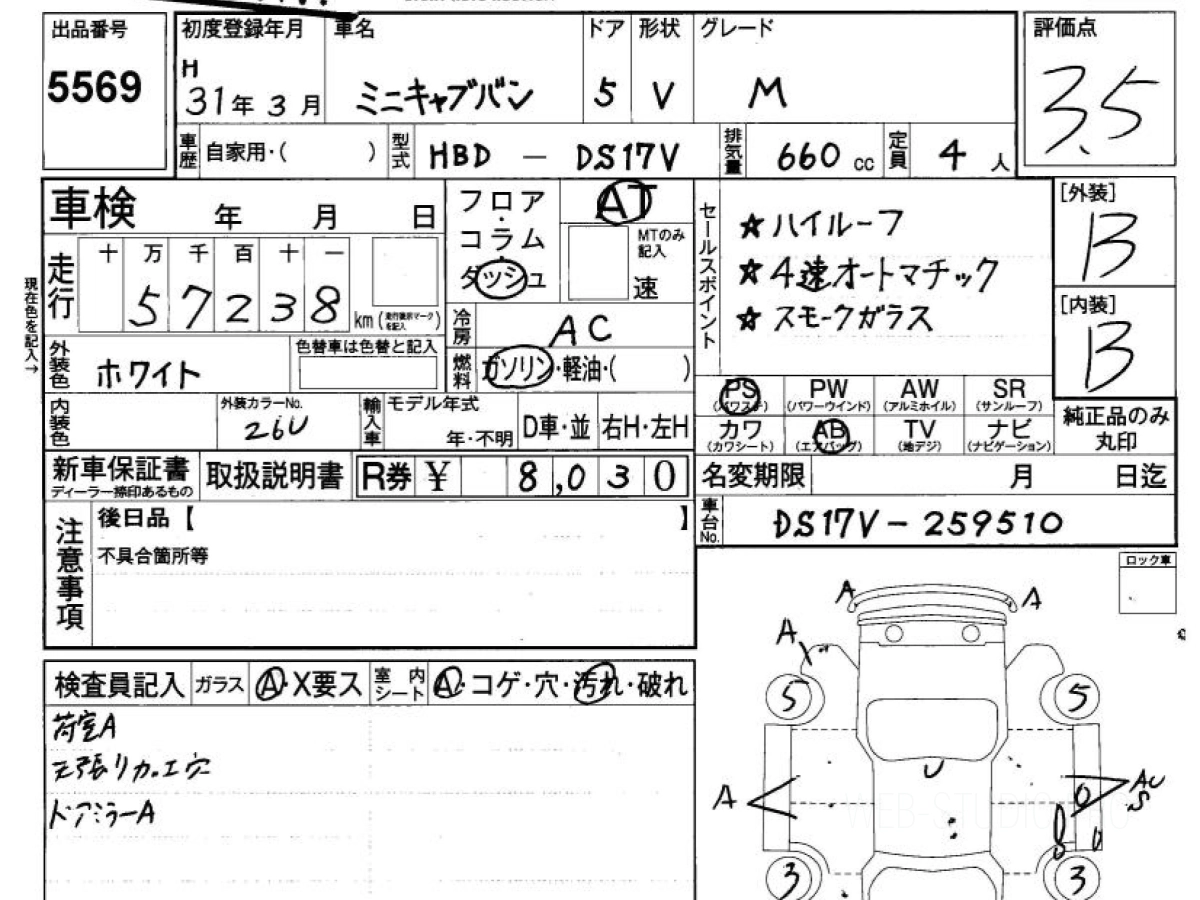 出品番号
5569
初度登録年月
H
31年3月
車名
ミニキャブバン
ドア
5
形状
V
グレード
M
評価点
3.5
車歴
自家用・( )
型式
HBD - DS17V
排気量
660 cc
定員
4人
車検 年 月 日
フロア
・
コラム
・
ダッシュ
AT
MTのみ
記入
速
セールスポイント
☆ハイルーフ
☆4速オートマチック
☆スモークガラス
[外装]
B
[内装]
B
現在色を記入→
走行
十 万 千 百 十 一
5 7 2 3 8
km(走行距離マークを記入)
冷房
AC
燃料
ガソリン・軽油・( )
外装色
ホワイト
色替車は色替と記入
PS
(パワステ)
PW
(パワーウインド)
AW
(アルミホイル)
SR
(サンルーフ)
カワ
(カワシート)
AB
(エアバッグ)
TV
(地デジ)
ナビ
(ナビゲーション)
純正品のみ
丸印
内装色
外装カラーNo.
26U
輸入車
モデル年式
年・不明
D車・並
右H・左H
新車保証書
ディーラー捺印あるもの
取扱説明書
R券 ¥ 8,030
名変期限 月 日迄
車台No.
DS17V-259510
注意事項
後日品【 】
不具合箇所等
ロック車
検査員記入
ガラス
A・X要ス
室内シート
A・コゲ・穴・汚れ・破れ
荷室A
天張りカ.エ穴
ドアミラーA
A
A
A
5
5
U
A
AU
S
3
3
WEB-STUDIO